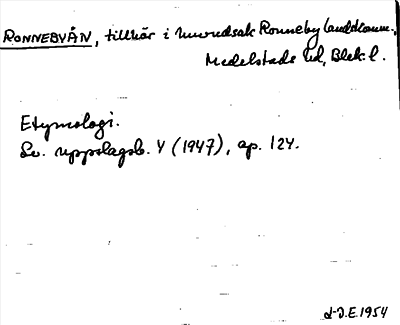 RONNEBYÅN, tillhör i huvudsak Ronneby landskomm.,
Medelstads hd, Blek. l.
Etymologi.
Sv. uppslagsb. 4 (1947), sp. 124.
J.E. 1954